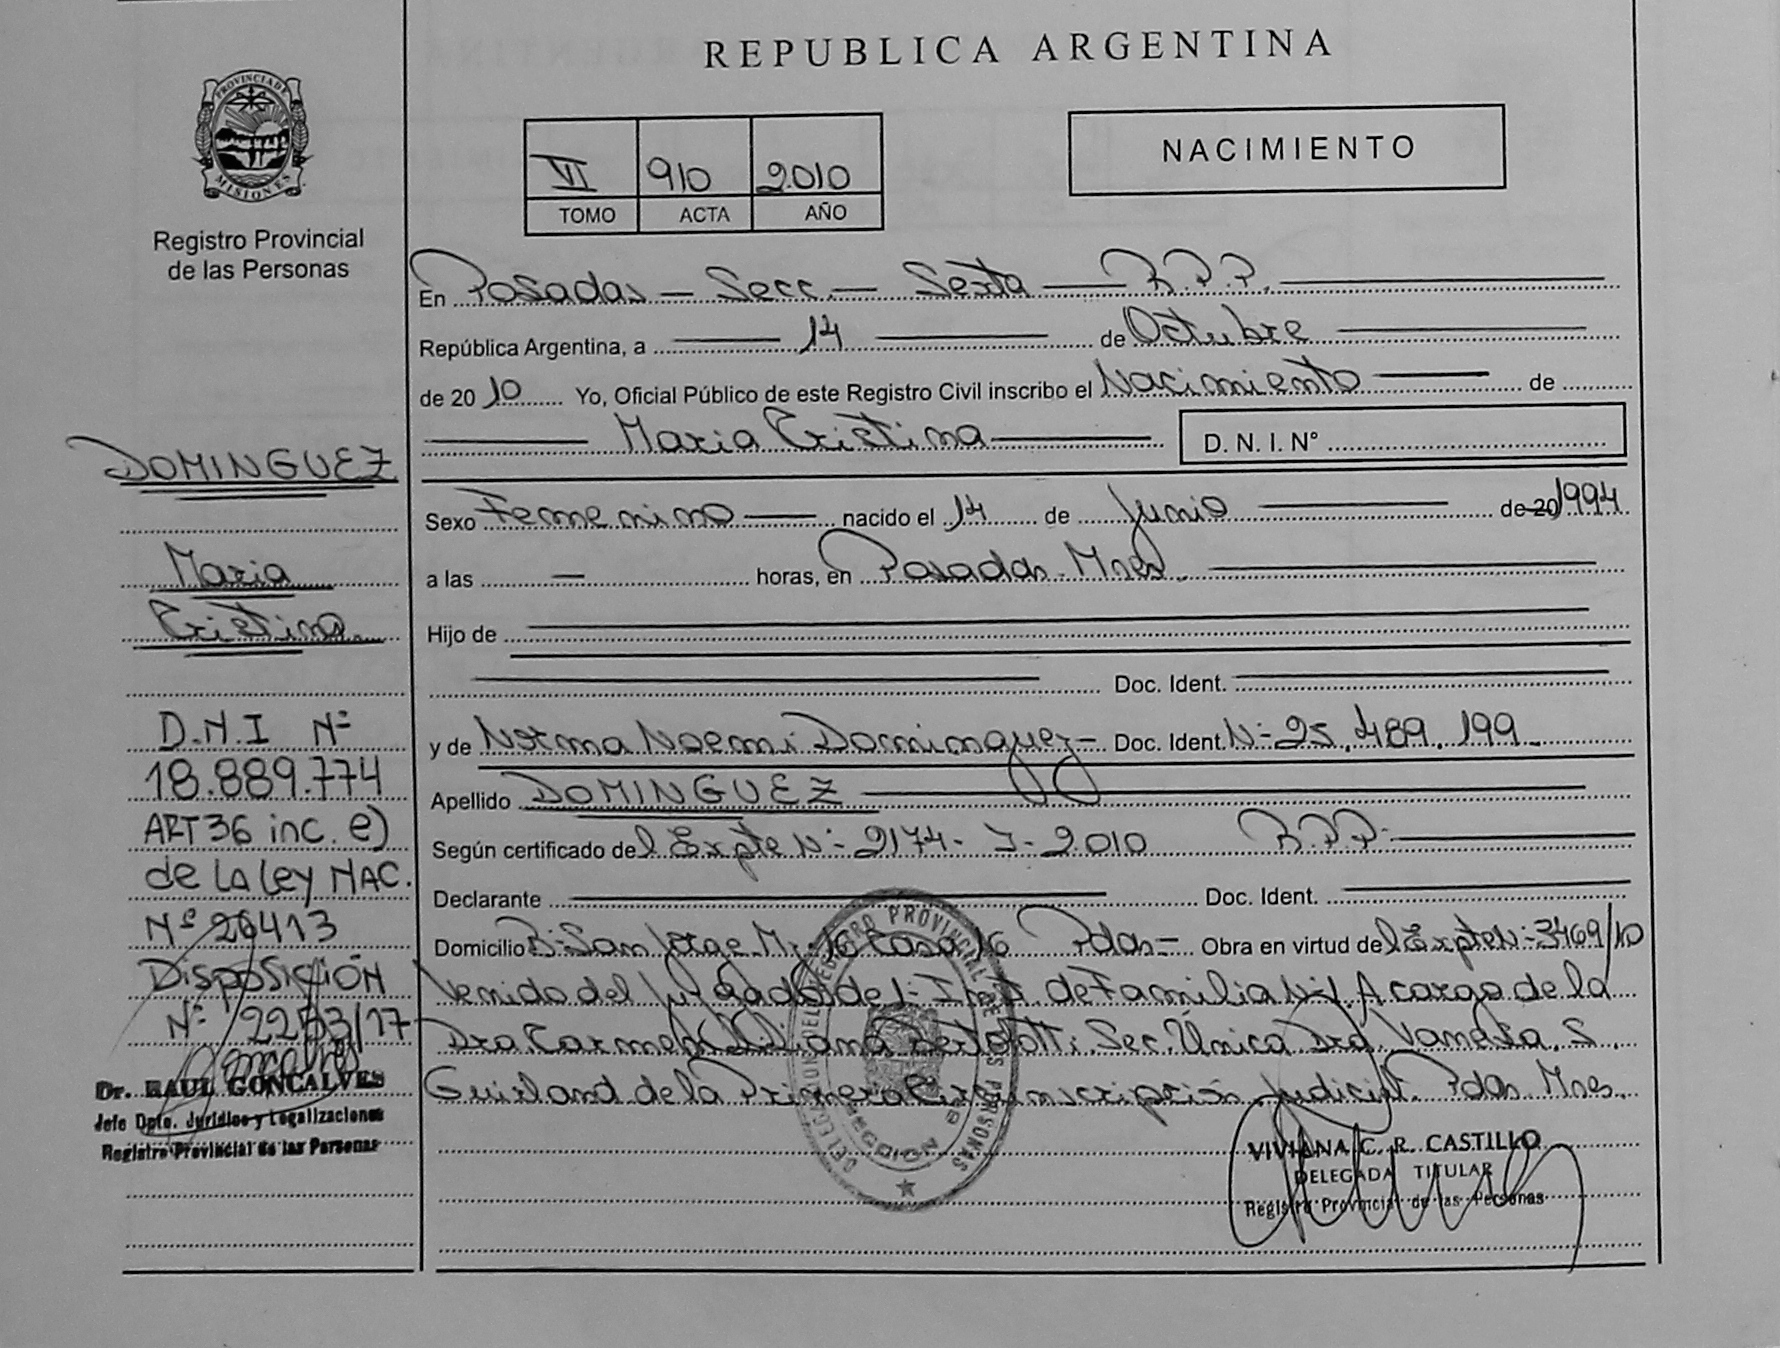 REPUBLICA ARGENTINA
PROVINCIA DE
MISIONES
Registro Provincial
de las Personas
VI 910 2010
TOMO ACTA AÑO
NACIMIENTO
En Posadas — Secc. — Sexta — R.P.P.
República Argentina, a — 14 — de Octubre
de 2010 Yo, Oficial Público de este Registro Civil inscribo el Nacimiento — de
— Maria Cristina — D. N. I. N°
Sexo Femenino — nacido el 14 de Junio — de 20 1994
a las — horas, en Posadas. Mnes.
Hijo de
Doc. Ident.
y de Norma Noemi Dominguez - Doc. Ident. N- 25.489.199
Apellido DOMINGUEZ
Según certificado del Expte N- 2174- J- 2010 R.P.P.
Declarante Doc. Ident.
Domicilio B- San Jorge Casa 16 Pdas- Obra en virtud del Expte N- 3469/10
Venido del Juzgado de 1- Inst. de Familia N-1. A cargo de la
Dra. Carmen Liliana Bertolotti Sec. Única Dra. Vanesa. S.
Guirland de la Primera Circunscripción Judicial. Pdas. Mnes.
VIVIANA C. R. CASTILLO
DELEGADA TITULAR
Registro Provincial de las Personas
DOMINGUEZ
Maria
Cristina
D.N.I Nº
18.889.774
ART 36 inc. e)
de La Ley NAC.
Nº 26413
DISPOSICIÓN
Nº 2253/17
Dr. RAUL GONCALVES
Jefe Dpto. Jurídico y Legalizaciones
Registro Provincial de las Personas
DELEGACION DEL REGISTRO PROVINCIAL DE LAS PERSONAS
SECCION 6ª